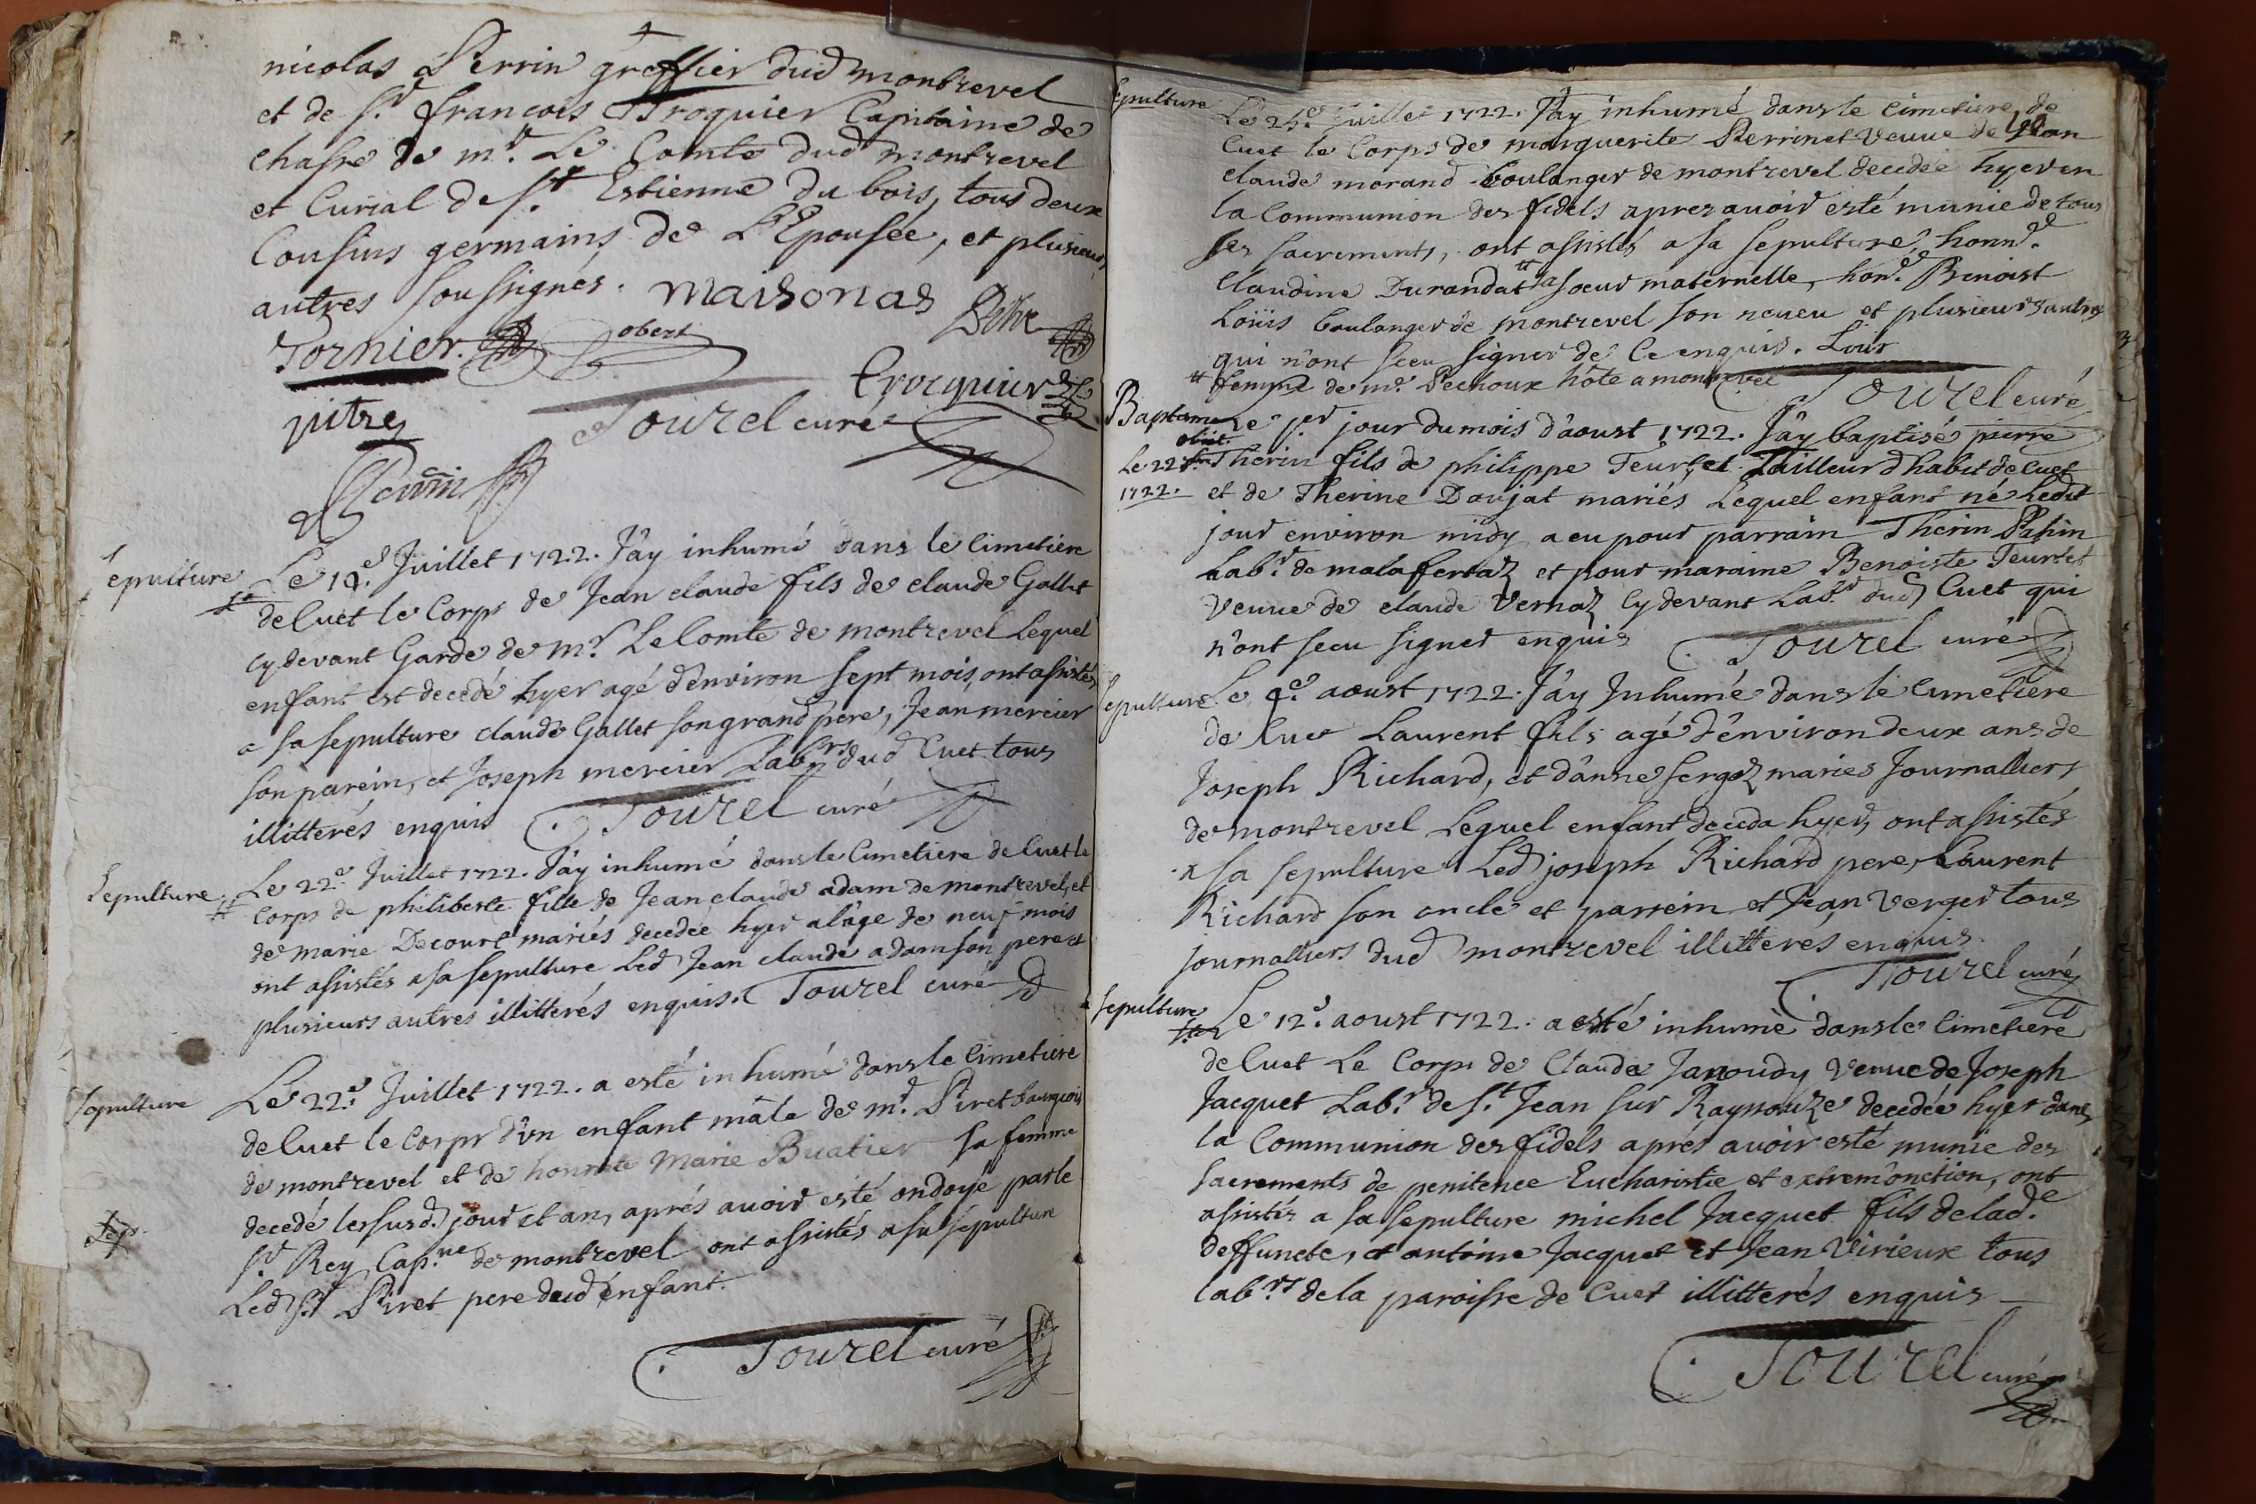 nicolas Perrin greffier dud montrevel
et de Sr. francois Broquier Capitaine de
chasse de mr. Le Comte dud montrevel
et Curial de St. Estienne du bois, tous deux
Cousins germains de L'Epousée, et plusieurs
autres soussignés. maisonas
Tornier. obert
Crocquier
vitre Tourel curé
Perrin
Sepulture Le 19e. Juillet 1722. J'ay inhumé dans le Cimetiere
de Cuet le Corps de Jean claude fils de claude Gallet
cy devant Garde de mr. Le Comte de montrevel Lequel
enfant est decedé hyer agé d'environ sept mois, ont assistés
a sa sepulture claude Gallet son grand pere, Jean mercier
son parein, et Joseph mercier Labrs. dud Cuet tous
illitterés enquis Tourel curé
Sepulture Le 22e. Juillet 1722. J'ay inhumé dans le Cimetiere de Cuet le
Corps de philiberte fille de Jean claude adam de montrevel, et
de marie Decourt mariés decedée hyer a l'âge de neuf mois
ont assistés a sa sepulture Led Jean claude adam son pere et
plusieurs autres illitterés enquis. Tourel curé
Sepulture Le 22e. Juillet 1722. a esté inhumé dans le Cimetiere
de Cuet le Corps d'un enfant mâle de mr. Piret bourgeois
de montrevel et de honnete Marie Buatier sa femme
decedé les susd. jour et an, aprés avoir esté ondoyé par le
Sr. Rey Capne. de montrevel ont assistés a sa sepulture
Led Sr. Piret pere dud enfant.
Sep.
Tourel curé
Sepulture Le 25e. Juillet 1722. J'ay inhumé dans le Cimetiere de
Cuet le Corps de marguerite Perrinet veuve de Jean
claude morand boulanger de montrevel decedée hyer en
la Communion des fidels apres avoir esté munie de tous
ses sacrements, ont assistés a sa sepulture honnd.
Claudine Durandat # sa soeur maternelle, hond. Benoist
Loüis boulanger de montrevel son neveu et plusieurs autres
qui n'ont sceu signer de Ce enquis. Louis
# femme de mr. Pechoux hôte a montrevel Tourel curé
Baptame Le 1er jour du mois d'aoust 1722. J'ây baptisé pierre
obiit
Le 22 Therin fils de philippe Teurtet Tailleur d'habit de Cuet
1722. et de Therine Doujat mariés Lequel enfant né Ledit
jour environ midy a eu pour parrain Therin Pahin
Labr. de malafertaz et pour maraine Benoiste Teurtet
veuve de claude Vernaz Cy devant Labr. dud Cuet qui
n'ont sceu signer enquis Tourel curé
Sepulture Le 9e. aoust 1722. J'ây Inhumé dans le Cimetiere
de Cuet Laurent fils agé d'environ deux ans de
Joseph Richard, et d'anne sergoz mariés Journalliers
de montrevel Lequel enfant deceda hyer, ont assistés
a sa sepulture Led joseph Richard pere, Laurent
Richard son oncle et parrein et Jean Verger tous
journalliers dud montrevel illitterés enquis.
Tourel curé
Sepulture Le 12e. aoust 1722. a esté inhumé dans le Cimetiere
de Cuet Le Corps de Claudé Janoudy veuve de Joseph
Jacquet Labr. de St. Jean sur Rayssouze decedée hyer dans
la Communion des fidels aprés avoir esté munie des
sacrements de penitence Eucharistie et extrem'onction, ont
assistés a sa sepulture michel Jacquet fils de lade.
deffuncte, et antoine Jacquet et Jean Virieux tous
labrs. de la paroisse de Cuet illitterés enquis
Tourel curé